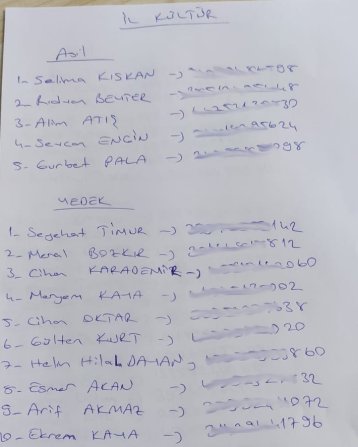 İL KÜLTÜR
Asil
1- Selma KISKAN -)
2- Rıdvan BEUTER -)
3- Alim ATIŞ -)
4- Sevcan ENGİN -)
5- Gurbet PALA -)
YEDEK
1- Seyehat TİMUR -) 142
2- Meral BOZKIR -) 812
3- Cihan KARADEMİR -) 060
4- Meryem KAYA -) 02
5- Cihan OKTAR -) 38
6- Gülten KURT -) 20
7- Helin Hilal 860
8- Esmer AKAN -) 32
9- Arif AKMAZ -) 072
10- Ekrem KAYA -) 1796